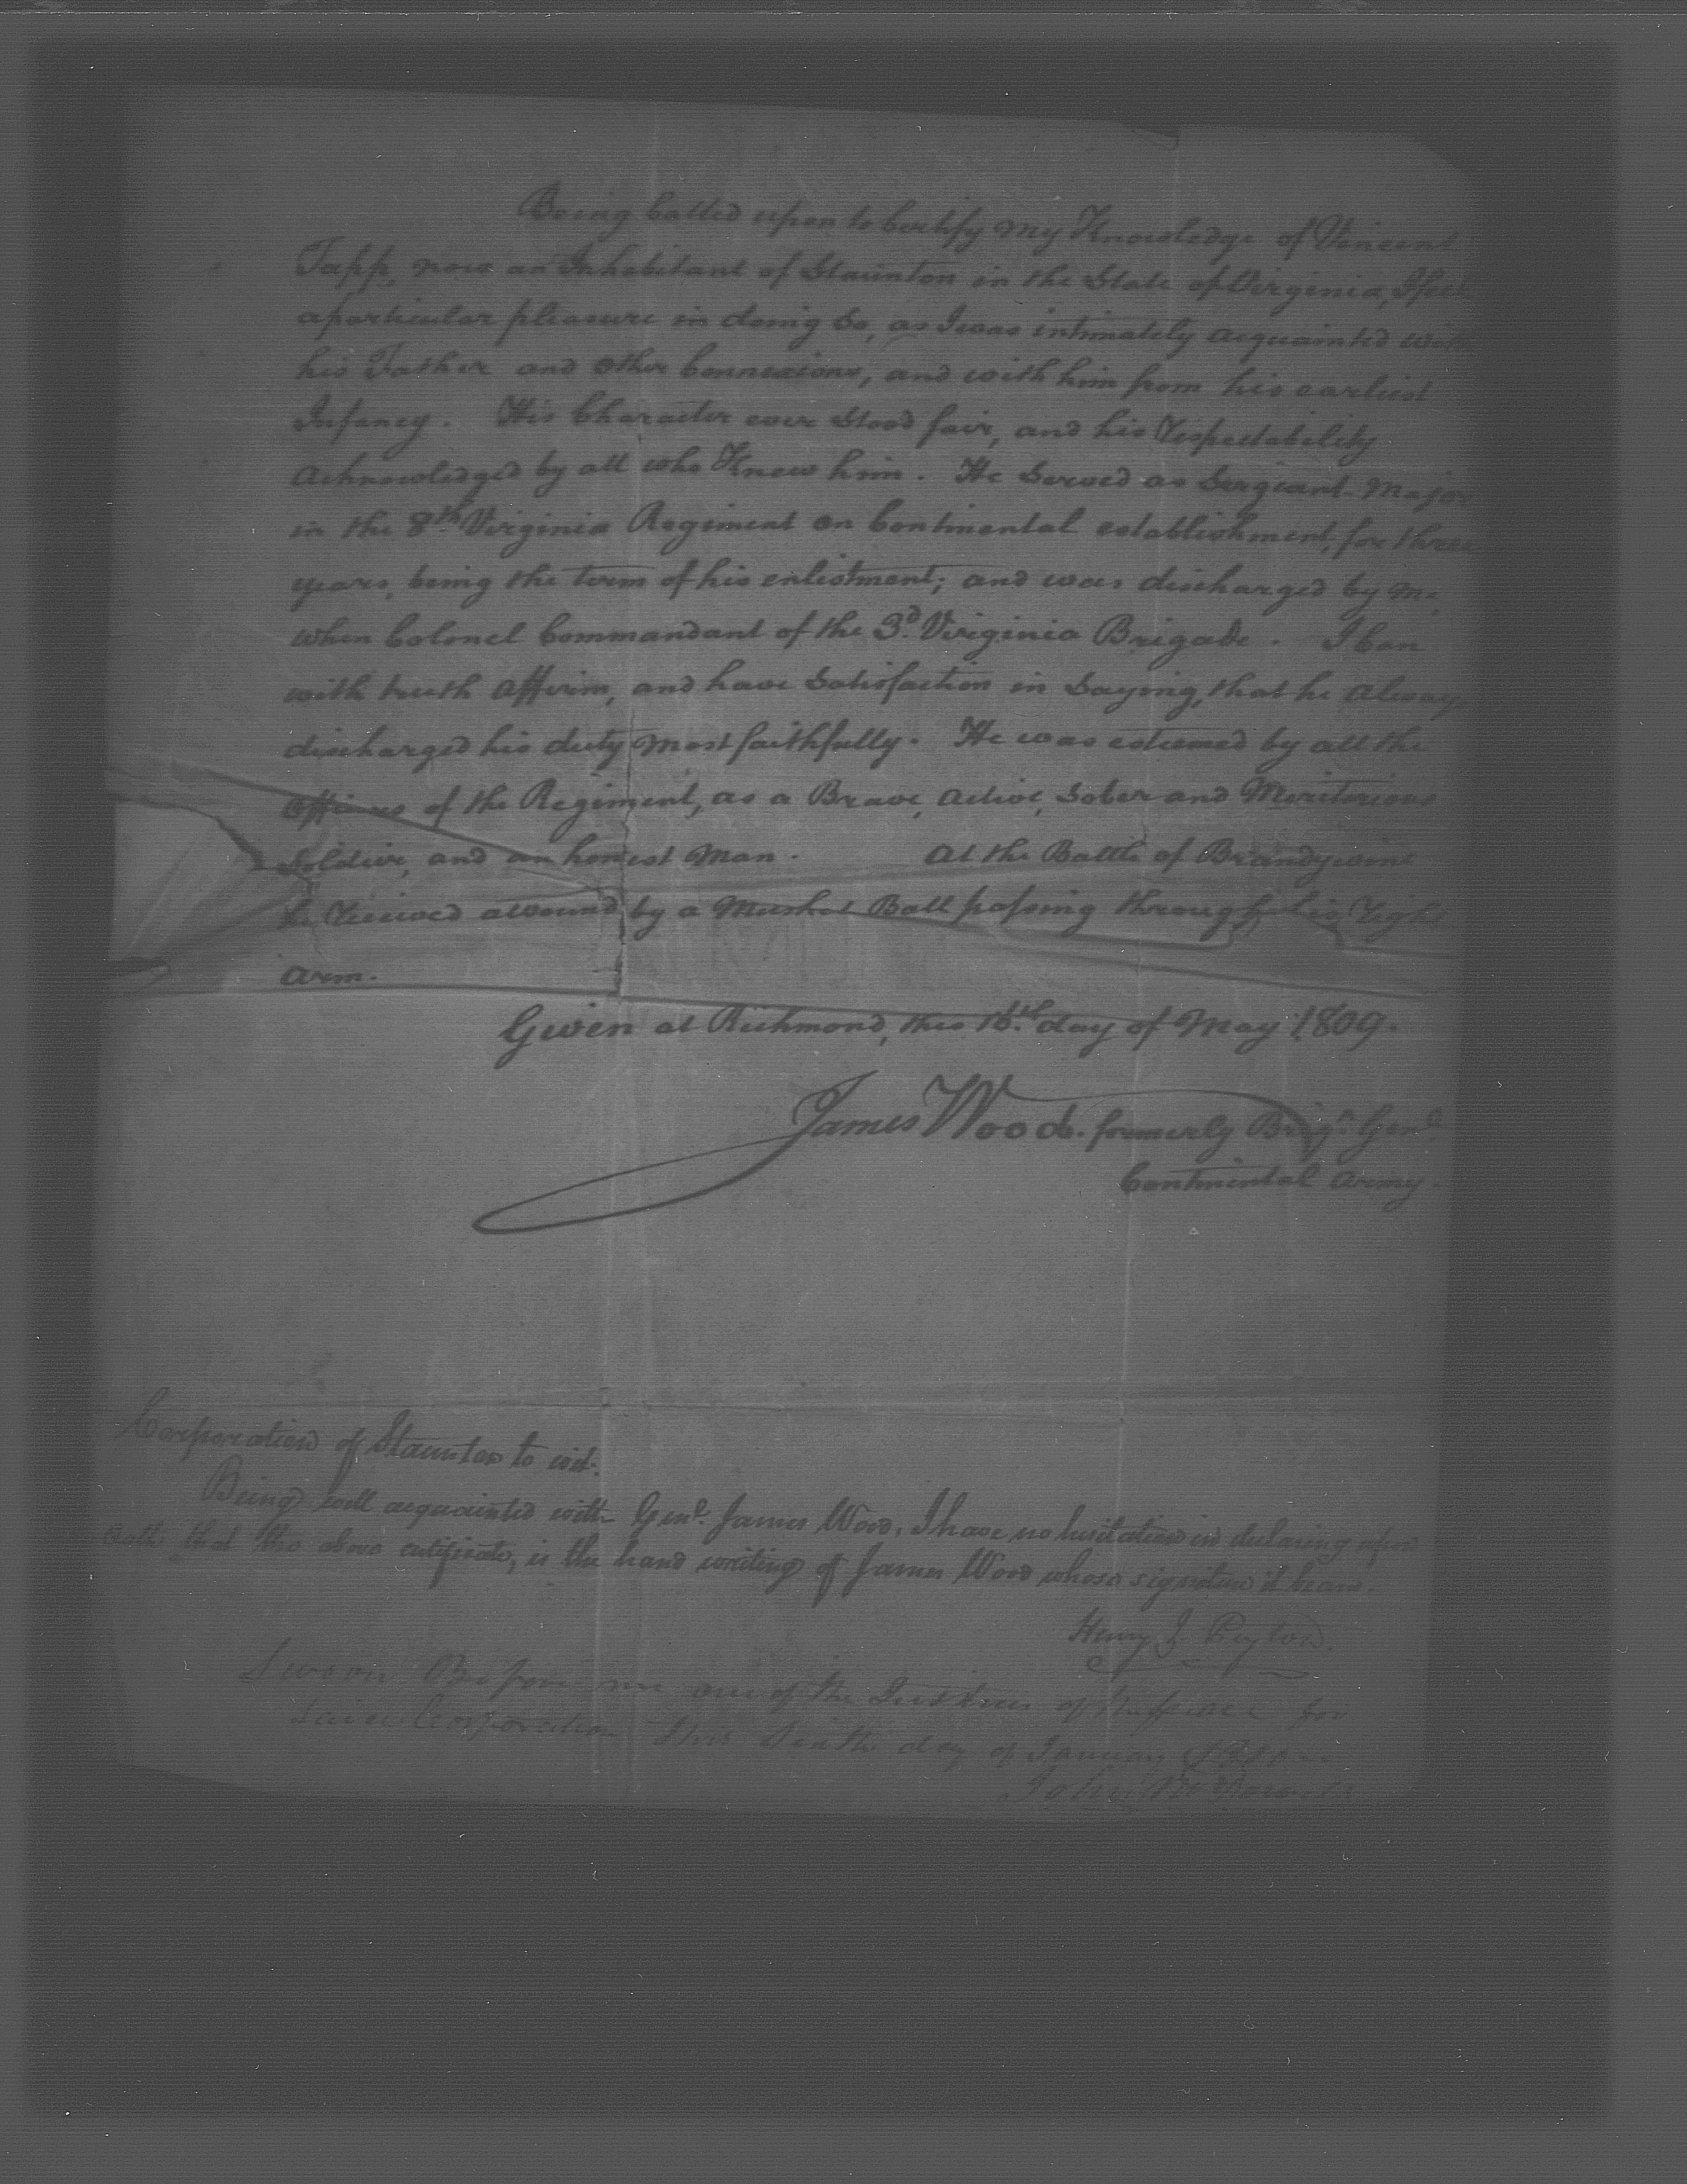 Being Called upon to Certify my Knowledge of Vincent
Tapp, now an Inhabitant of Staunton in the State of Virginia, I feel
a particular pleasure in doing so, as I was intimately acquainted with
his Father and other Connexions, and with him from his earliest
Infancy. His Character ever stood fair, and his respectability
acknowledged by all who Knew him. He served as Sergeant-Major
in the 8th Virginia Regiment on Continental establishment, for three
years, being the term of his enlistment; and was discharged by me,
when Colonel Commandant of the 3d Virginia Brigade. I Can
with truth affirm, and have satisfaction in saying, that he always
discharged his duty most faithfully. He was esteemed by all the
Officers of the Regiment, as a Brave, active, sober and Meritorious
Soldier, and an honest Man. At the Battle of Brandywine
he received a wound by a Musket Ball passing through his right
arm.
Given at Richmond, this 16th day of May 1809.
James Wood. formerly Brigr Genl
Continental Army.
Corporation of Staunton to wit:
Being well acquainted with Genl James Wood, I have no hesitation in declaring upon
oath that the above certificate, is the hand writing of James Wood whose signature it bears.
Henry J. Peyton.
Sworn Before me one of the Justices of the peace for
said Corporation this day of January
John